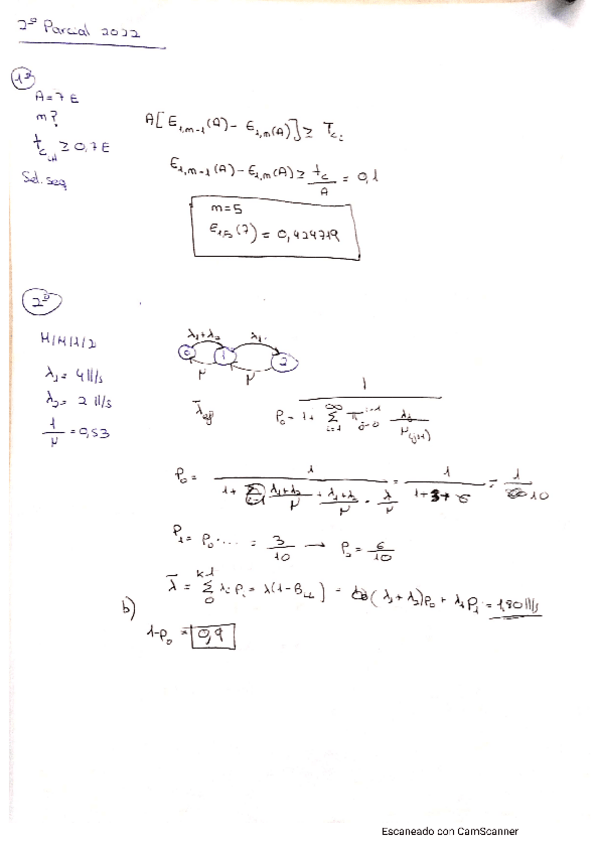 2º Parcial 2022
1º
A = 7 E
m?
t_c,A ≥ 0,7 E
Sel. seq
A[E_1,m-1(A) - E_1,m(A)] ≥ T_c
E_1,m-1(A) - E_1,m(A) ≥ t_c/A = 0,1
m=5
E_1,5(7) = 0,424719
2º
M/M/1/2
λ_1 = 4 ll/s
λ_2 = 2 ll/s
1/μ = 0,5 s
λ_1+λ_2 λ_1
0 1 2
μ μ
P_0 = 1 / 1 + ∑_{i=1}^{∞} π_{j=0}^{i-1} λ_j / μ_(j+1)
P_0 = 1 / 1 + (λ_1+λ_2)/μ + (λ_1+λ_2)/μ · λ/μ = 1 / 1+3+6 = 1/10
P_1 = P_0 .... = 3/10 → P_2 = 6/10
λ̄ = ∑_0^{k-1} λ_i P_i = λ(1-B_) = (λ_1 + λ_2)P_0 + λ_1 P_1 = 1,80 ll/s
b)
1-P_0 = 0,9
Escaneado con CamScanner